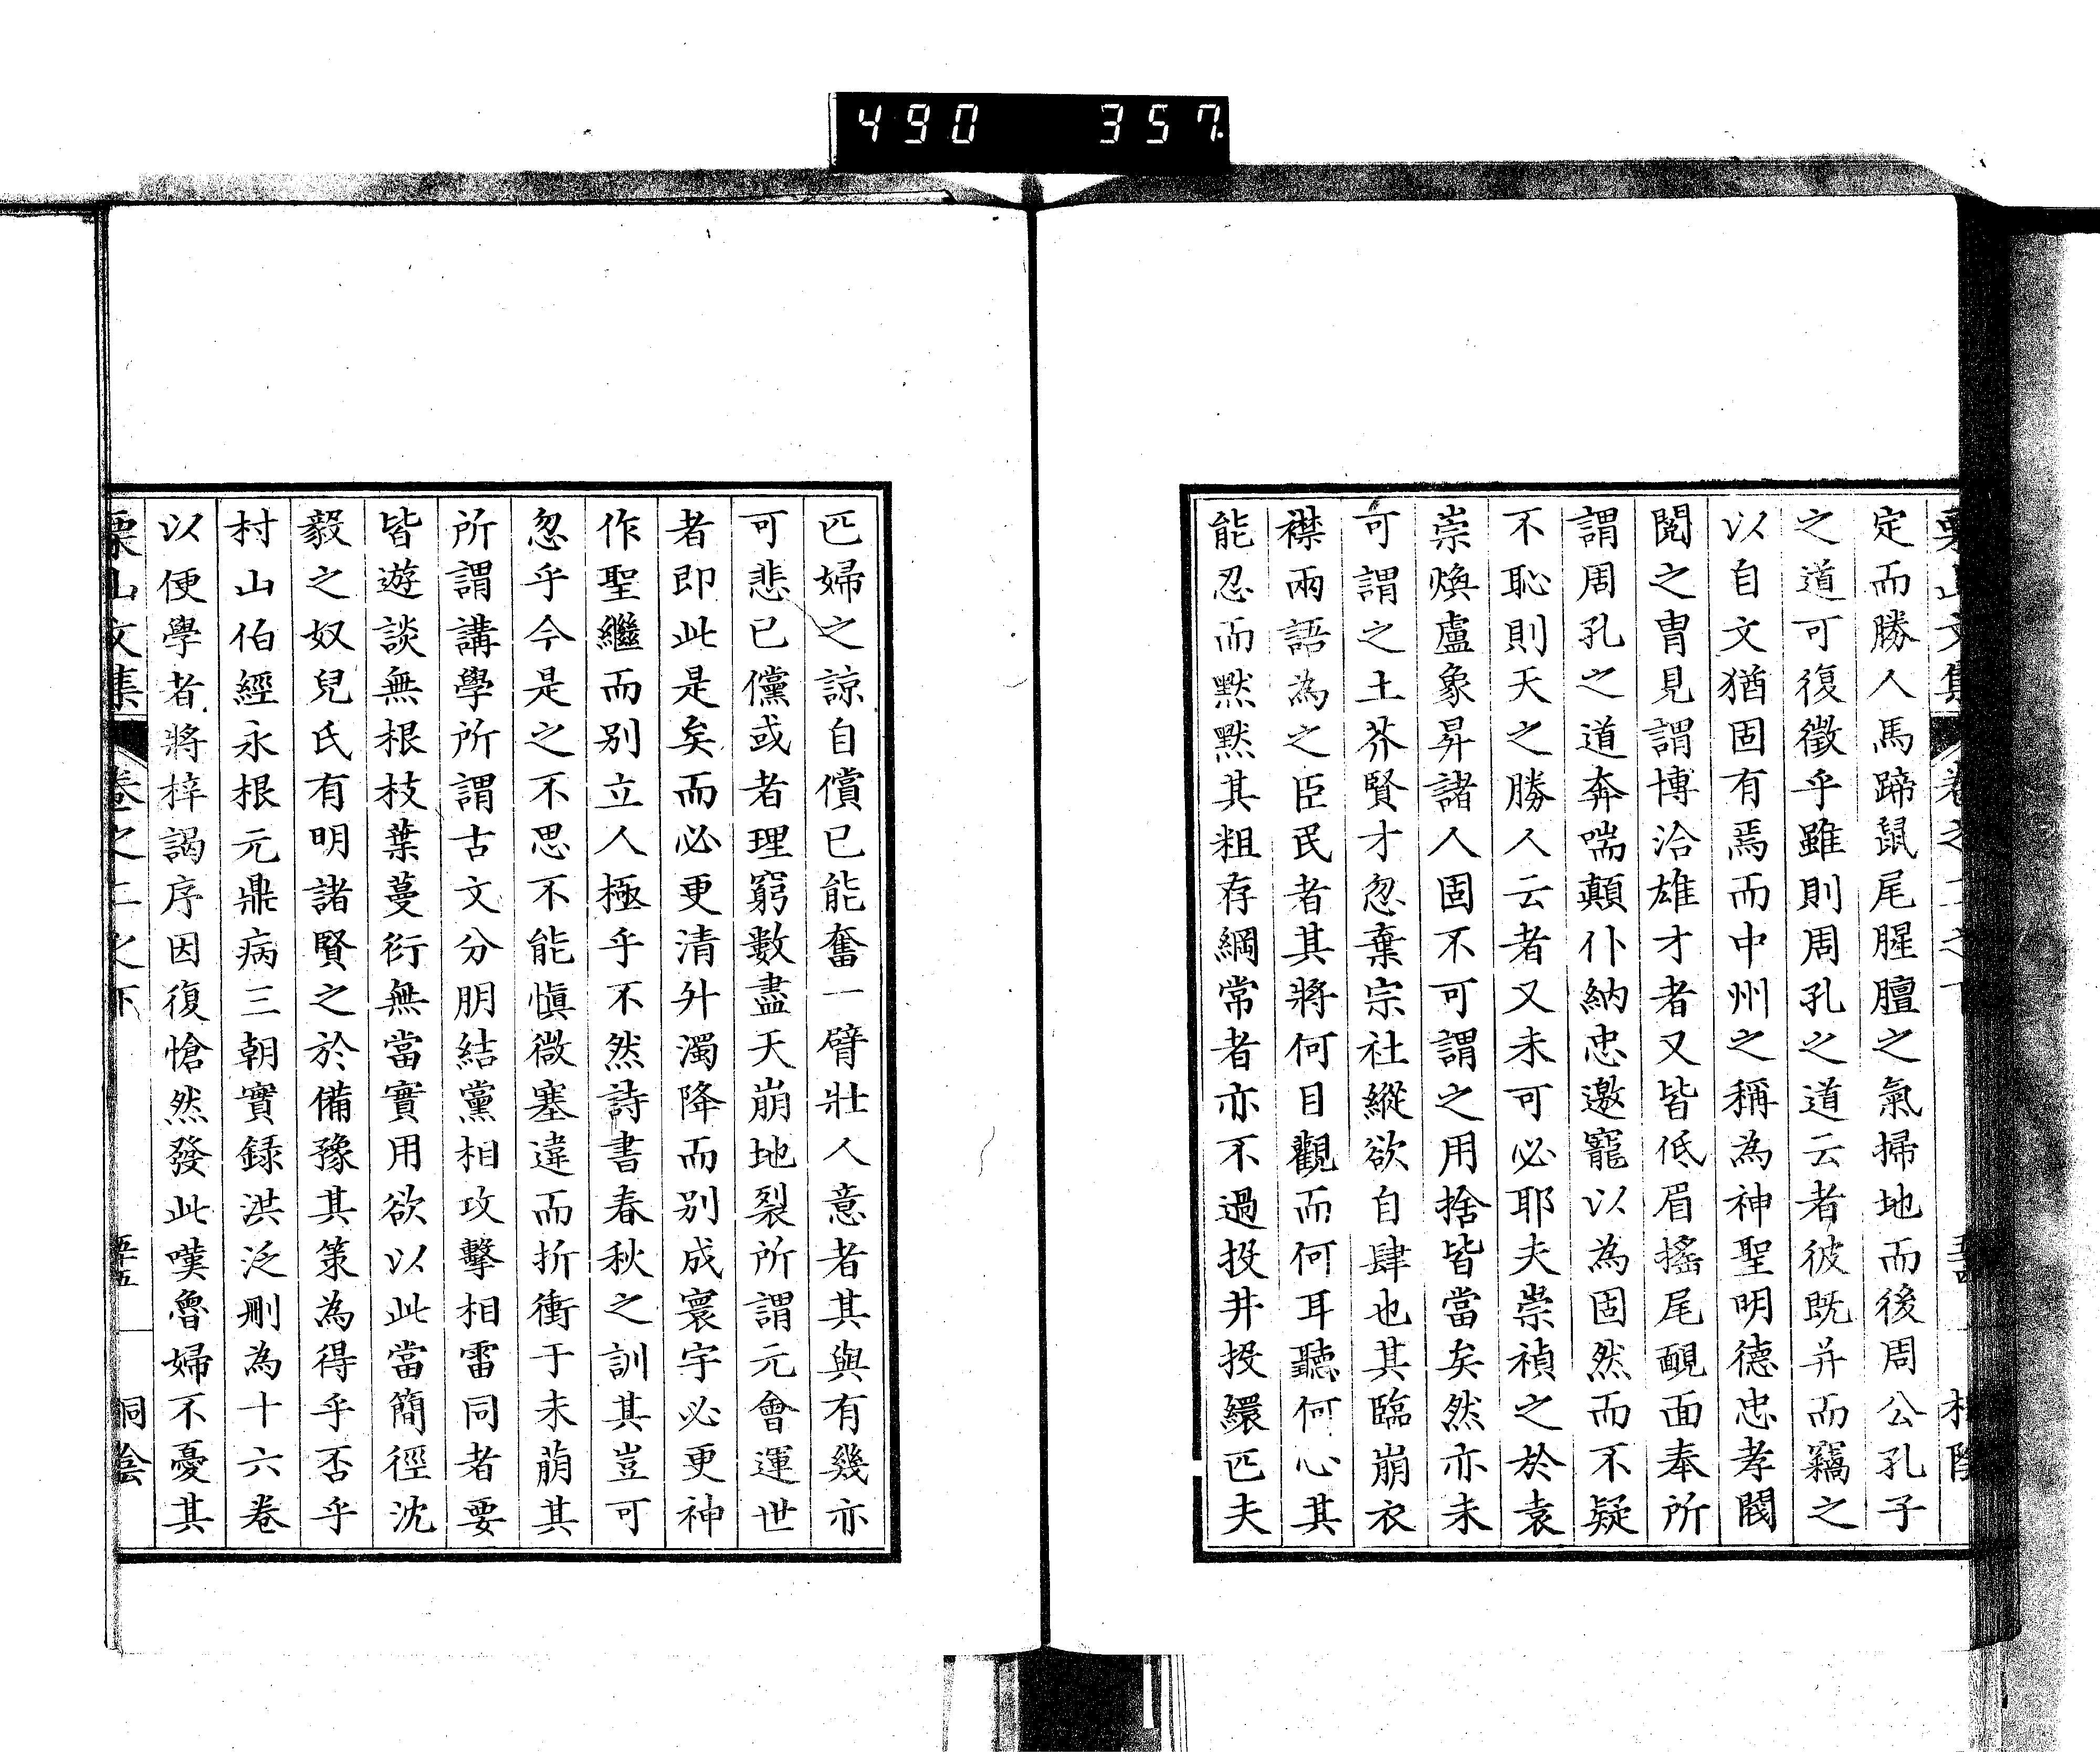 490 357
定而勝人馬蹄鼠尾腥膻之氣掃地而後周公孔子
之道可復徵乎雖則周孔之道云者彼既并而竊之
以自文猶固有焉而中州之稱為神聖明德忠孝閥
閲之胄見謂博洽雄才者又皆低眉搖尾靦面奉所
謂周孔之道奔喘顛仆納忠邀寵以為固然而不疑
不恥則天之勝人云者又未可必耶夫崇禎之於袁
崇煥盧象昇諸人固不可謂之用捨皆當矣然亦未
可謂之土芥賢才忽棄宗社縱欲自肆也其臨崩衣
襟兩語為之臣民者其將何目觀而何耳聽何心其
能忍而默默其粗存綱常者亦不過投井投繯匹夫
匹婦之諒自償已能奮一臂壯人意者其與有幾亦
可悲已儻或者理窮數盡天崩地裂所謂元會運世
者即此是矣而必更清升濁降而別成寰宇必更神
作聖繼而別立人極乎不然詩書春秋之訓其豈可
忽乎今是之不思不能愼微塞違而折衝于未萠其
所謂講學所謂古文分朋結黨相攻擊相雷同者要
皆遊談無根枝葉蔓衍無當實用欲以此當簡徑沈
毅之奴兒氏有明諸賢之於備豫其策為得乎否乎
村山伯經永根元鼎病三朝實録洪泛刪為十六卷
以便學者將梓謁序因復愴然發此嘆魯婦不憂其
栗山文集 卷之二之下 五十五 桐陰